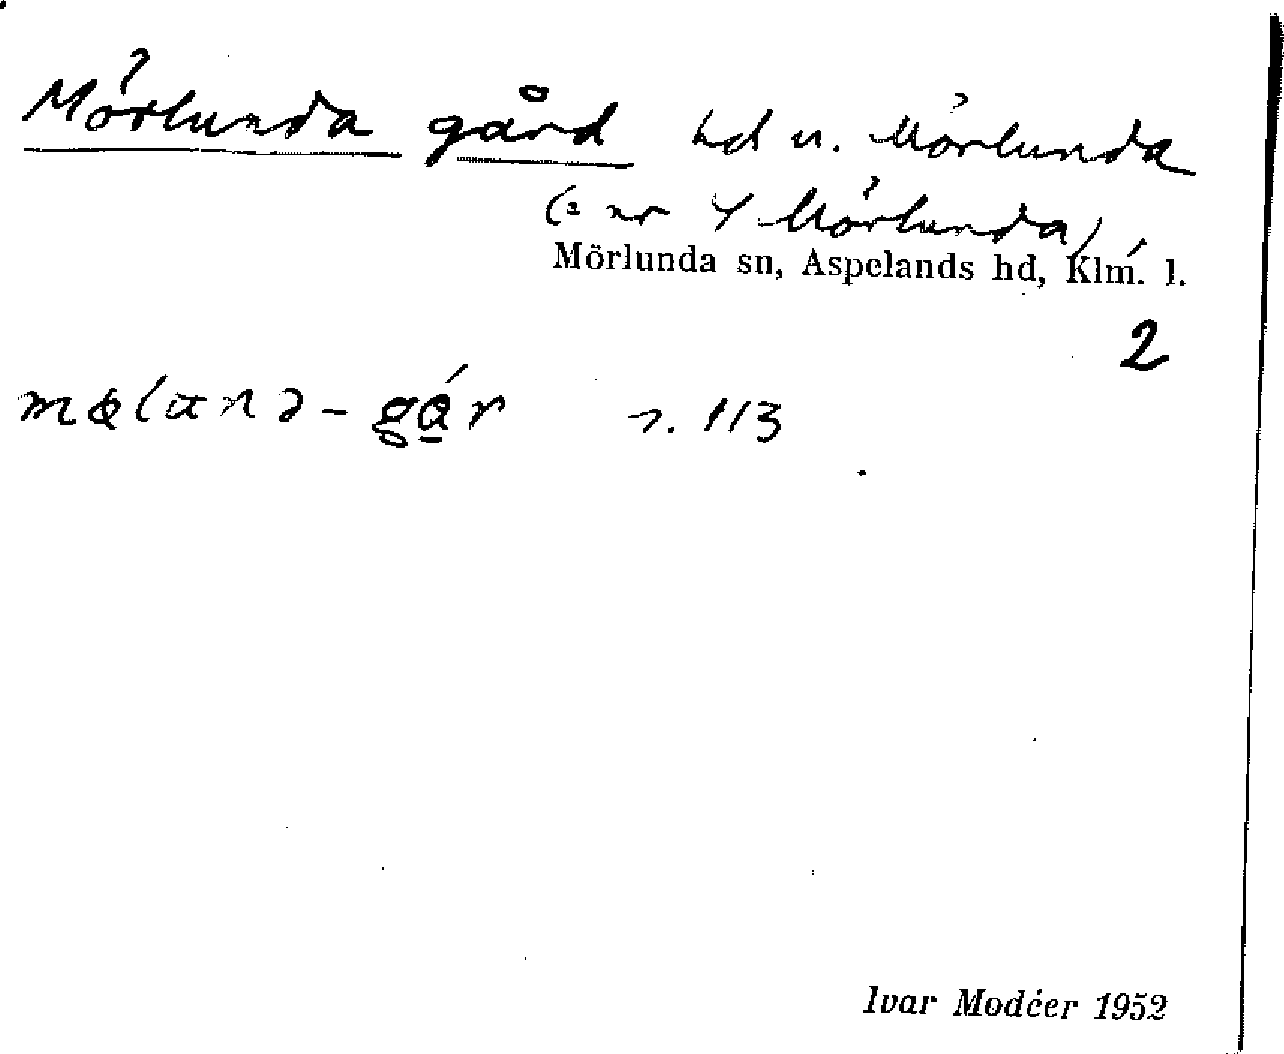 Mörlunda gård hd u. Mörlunda
(= nr 4 Mörlunda)
Mörlunda sn, Aspelands hd, Klm. l.
2
s. 113
Ivar Modéer 1952